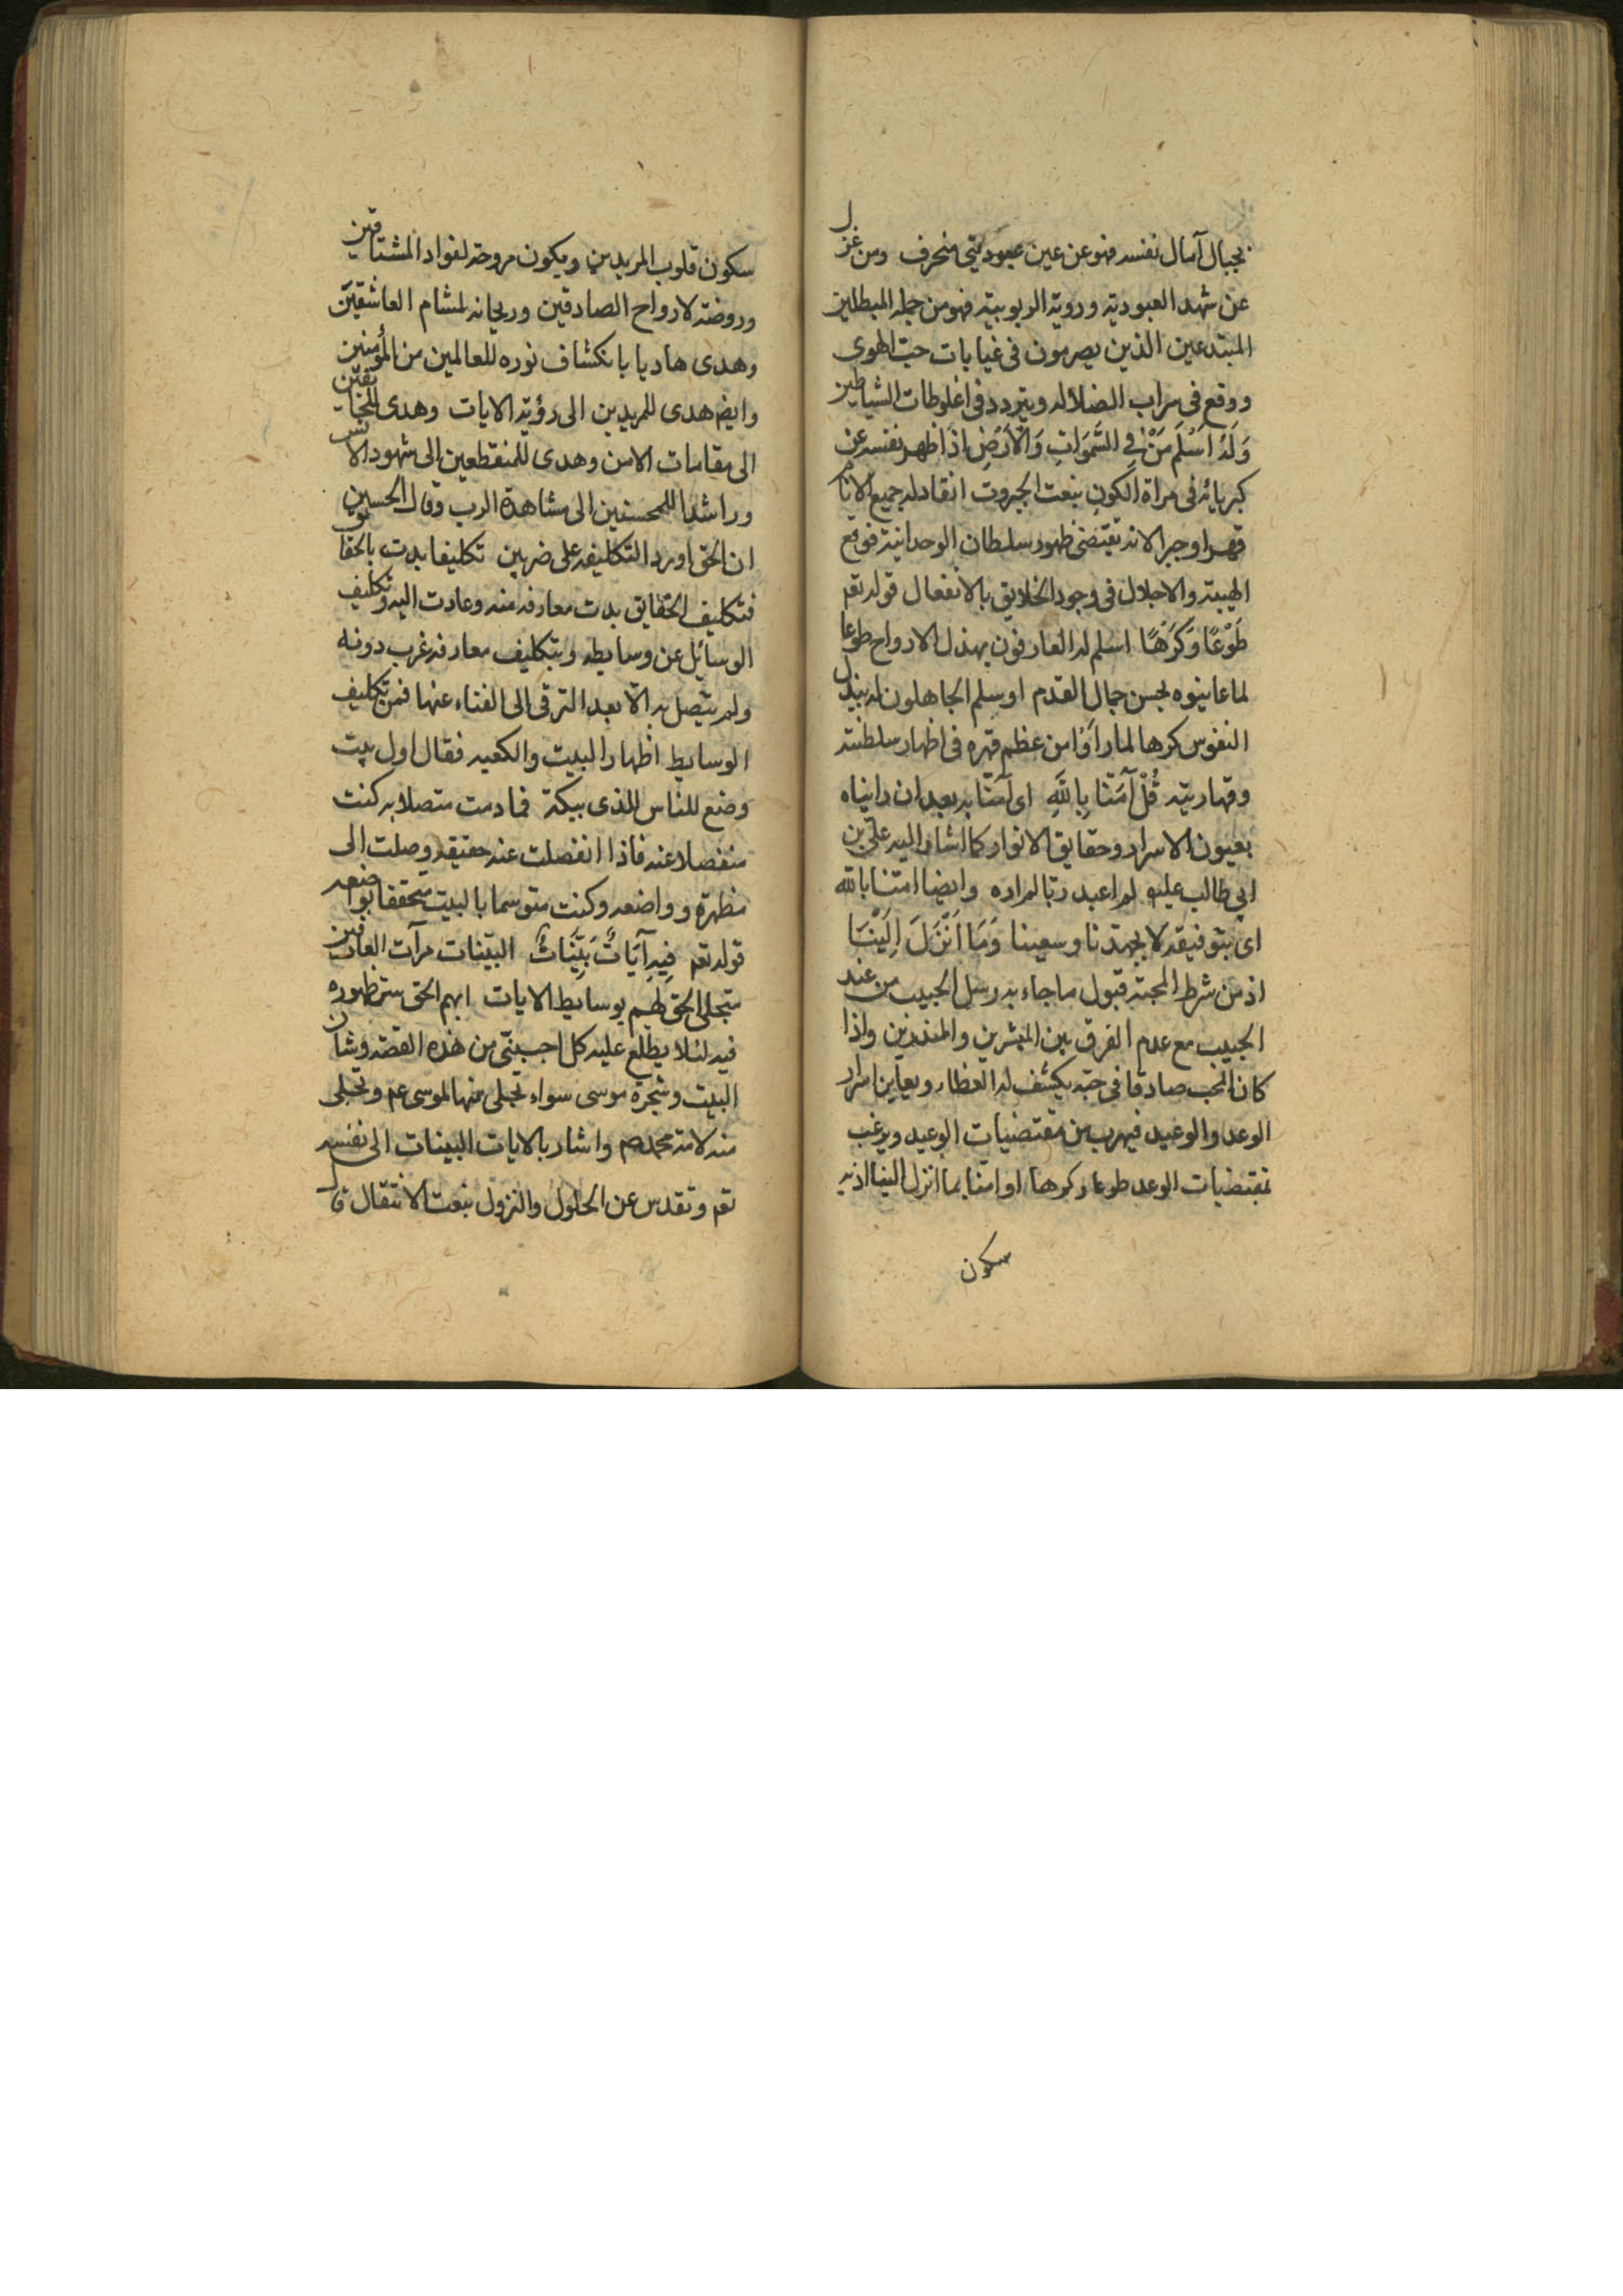 بجبال آمال نفسه فهو عن عين عبوديتى منحرف ومن عزل
عن شهد العبودية وروية الربوبية فهو من جملة المبطلين
المبتدعين الذين يصرمون فى غيابات حب الهوى
ووقع فى سراب الضلاله ويتردد فى اغلوطات الشياطين
وَلَهُ اَسْلَمَ مَنْ فِى السَّمَوَاتِ وَالْاَرْضِ اذا ظهر نفسه عن
كبريائه فى مراة الكون بنعت الجبروت انقاد له جميع الانام
قهرا وجبرا لانه تقتضى ظهور سلطان الوحدانية فوقع
الهيبة والاجلال فى وجود الخلايق بالانفعال قوله تعم
طَوْعًا وَكَرْهًا اسلم له العارفون ببذل الارواح طوعا
لما عاينوه بحسن جمال القدم او سلم الجاهلون له ببذل
النفوس كرها لما راَوْا من عظم قهره فى اظهار سلطنته
وقهاريته قُلْ آمَنَّا بِاللهِ اى آمنّا به بعد ان رايناه
بعيون الاسرار وحقايق الانوار كما اشار اليه علىّ بن
ابى طالب عليه لم اعبد ربّا لم اره وايضا امنا بالله
اى بتوفيقه لا بجهدنا وسعينا وَمَا اَنْزَلَ اِلَيْنَا
اذ من شرط المحبة قبول ما جاء به رسل الحبيب من عند
الحبيب مع عدم الفرق بين المبشرين والمنذرين واذا
كان المحب صادقا فى حبه يكشف له الغطاء ويعاين اسرار
الوعد والوعيد فيهرب من مقتضيات الوعيد ويرغب
بمقتضيات الوعد طوعا وكرها او امنا بما انزل الينا اذ به
سكون
سكون قلوب المريدين ويكون مروحة لفواد المشتاقين
وروضة لارواح الصادقين وريحانه لمشام العاشقين
وهدى هاديا بانكشاف نوره للعالمين من المؤمنين
وايضا هدى للمريدين الى رؤية الايات وهدى للخائفين
الى مقامات الامن وهدى للمنقطعين الى شهود الانس
وراشدا للمحسنين الى مشاهدة الرب وقال الحسين
ان الحق اورد التكليف على ضربين تكليفا بدت بالحقايق
فتكليف الحقايق بدت معارفه منه وعادت اليه وتكليف
الوسائل عن وسايطه وبتكليف معارفه غرب دونه
ولم يتصل به الا بعد الترقى الى الفناء عنها فمن تكليف
الوسايط اظهار البيت والكعبه فقال اول بيت
وضع للناس للذى ببكة فما دمت متصلا به كنت
منفصلا عنه فاذا انفصلت عنه حقيقه وصلت الى
مظهره وواضعه وكنت متوسما بالبيت متحققا بواضعه
قوله تعم فِيهِ آيَاتٌ بَيِّنَاتٌ البيّنات مرآت العارفين
يتجلى الحق لهم بوسايط الايات ابهم الحق ستر ظهوره
فيه لئلا يطلع عليه كل اجنبىّ من هذه القصة وشان
البيت وشجرة موسى سواء تجلى منها لموسى عم وتجلى
منه لامة محمد صم واشار بالايات البينات الى نفسه
تعم وتقدس عن الحلول والنزول بنعت الانتقال قال